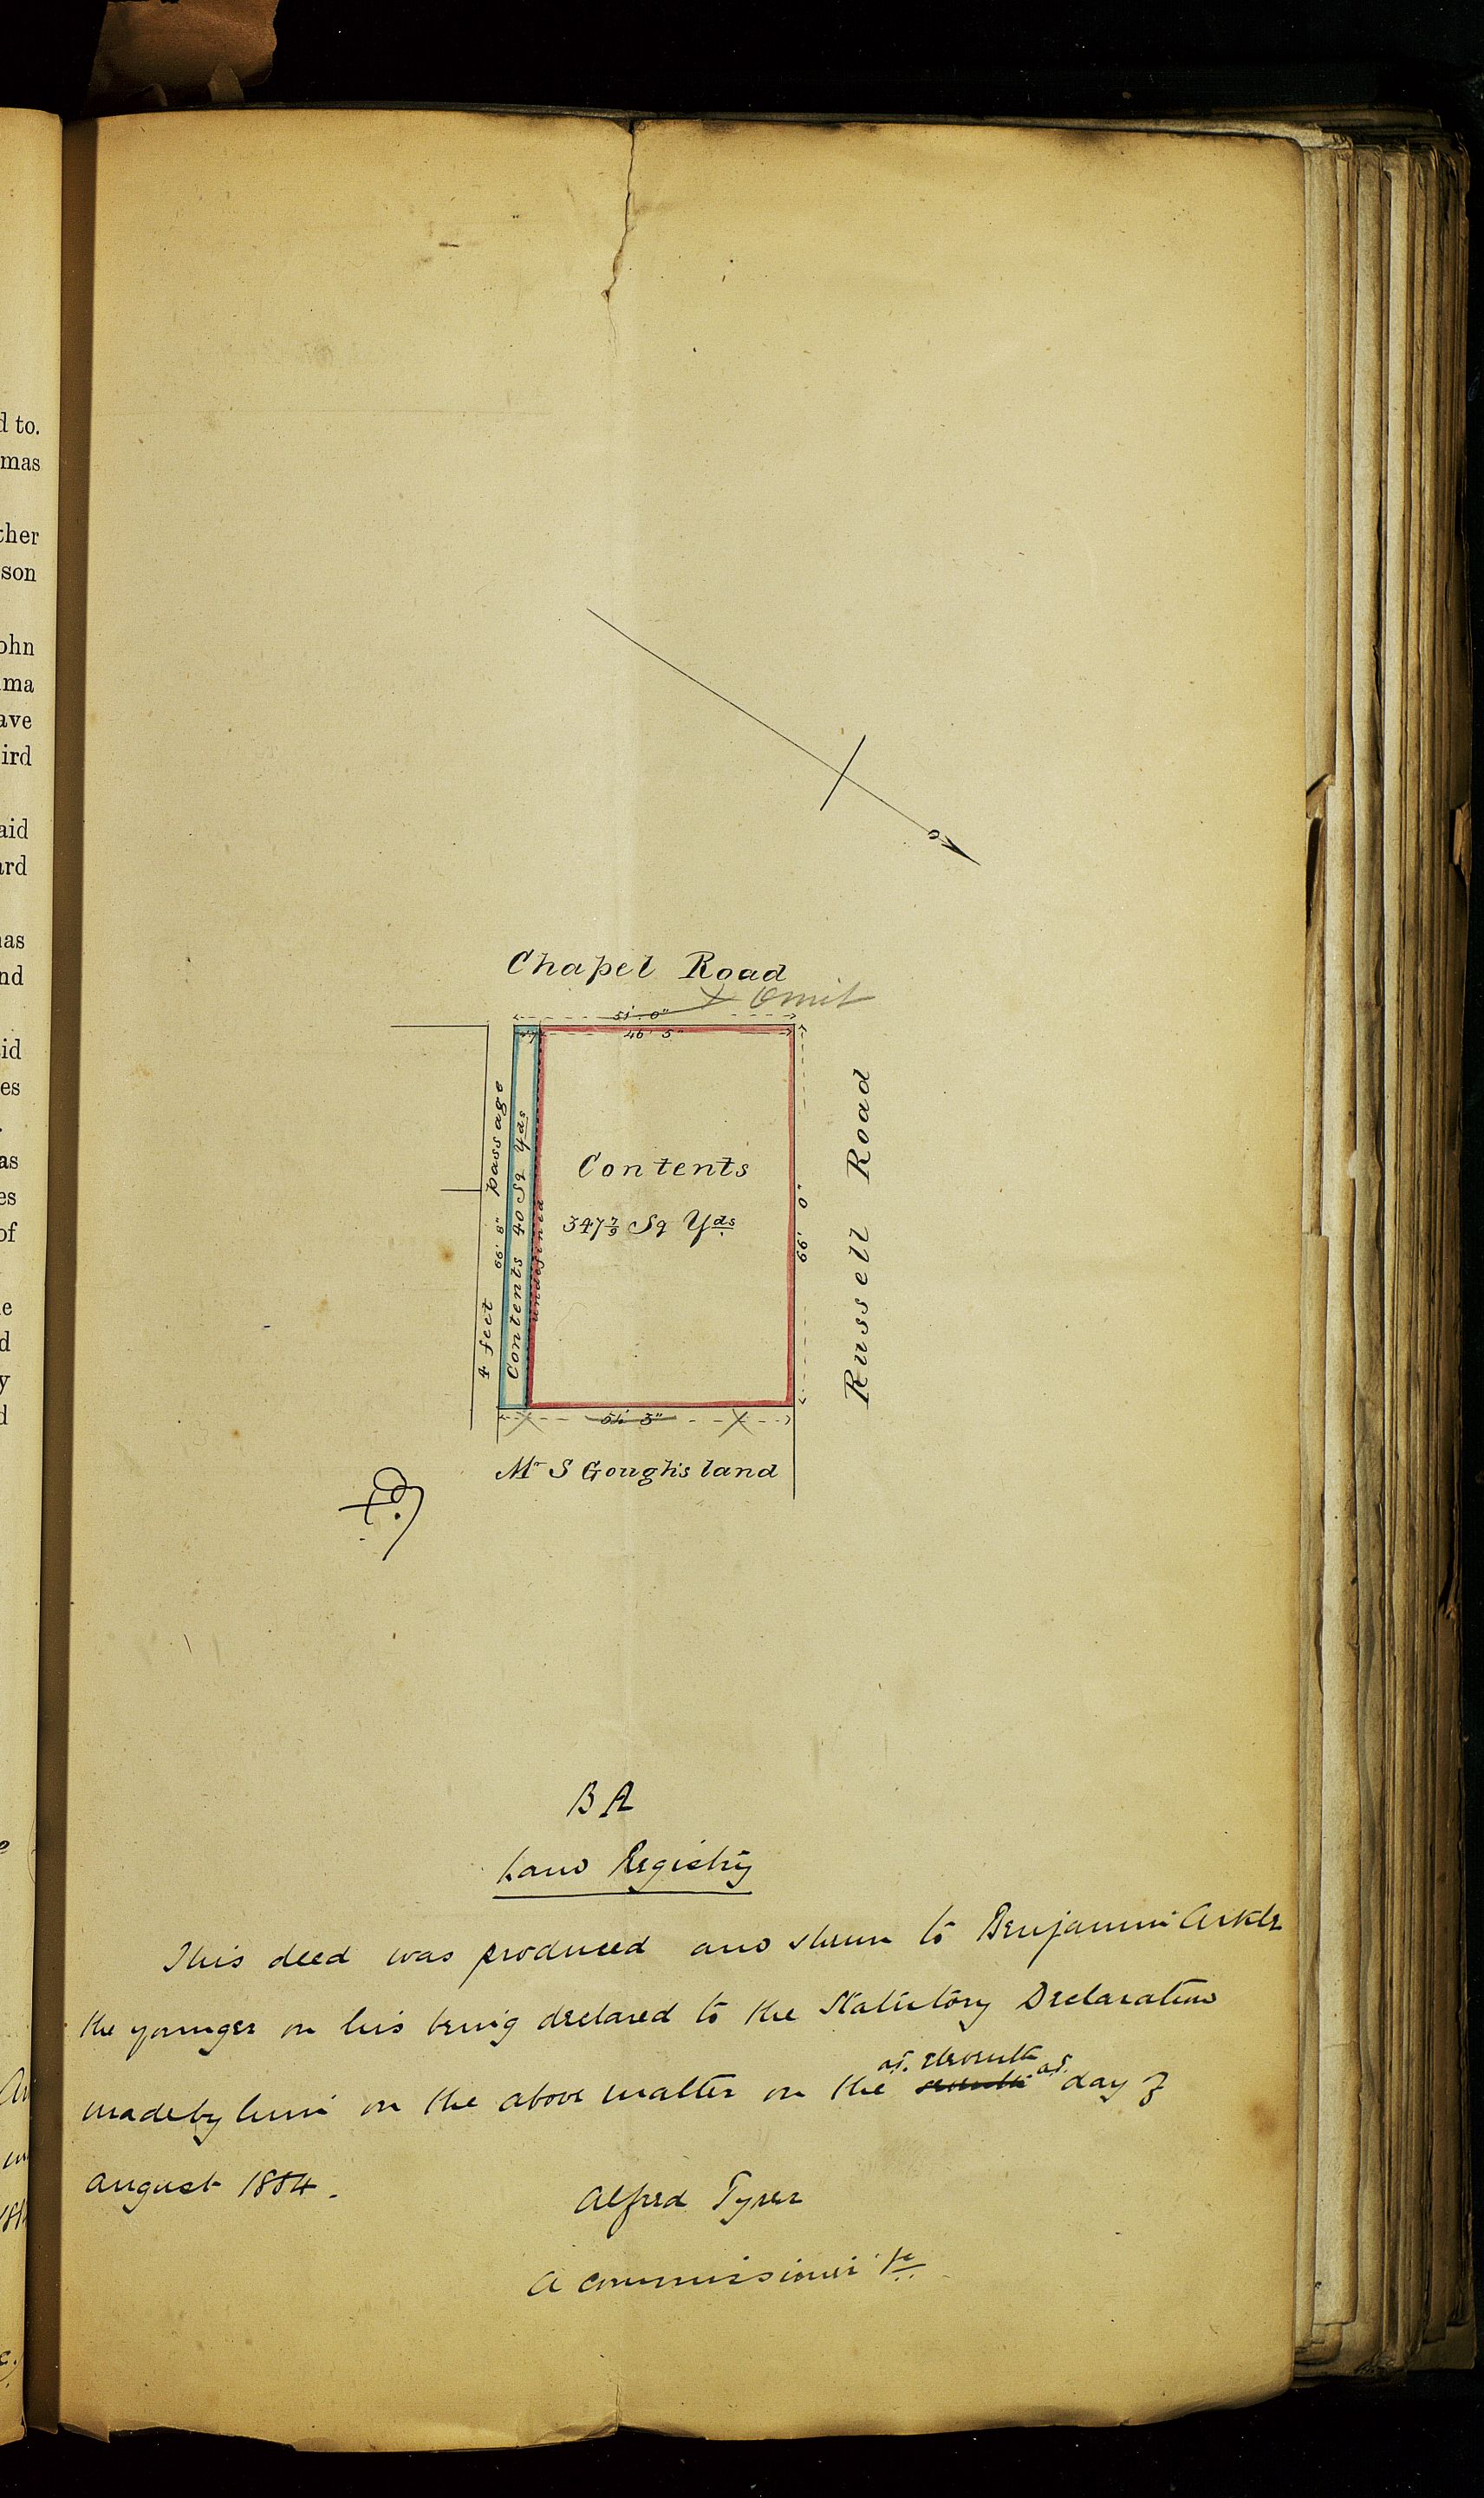 d to.
mas
ther
son
ohn
ma
ave
ird
aid
ard
as
nd
id
es
as
es
of
e
d
y
d
Chapel Road
Omit
51' 0"
46' 5"
4 feet 66' 8" passage
Contents 40 Sq Yds
undefined
Contents
347 7/9 Sq Yds
66' 0"
Russell Road
51' 3"
Mr S Gough's land
B A
Land Registry
This deed was produced and shewn to Benjamin Arkle
the younger on his being declared to the Statutory Declaration
made by him in the above matter on the seventh day of
at. eleventh at.
August 1884.
Alfred Tyrer
A commissioner &c